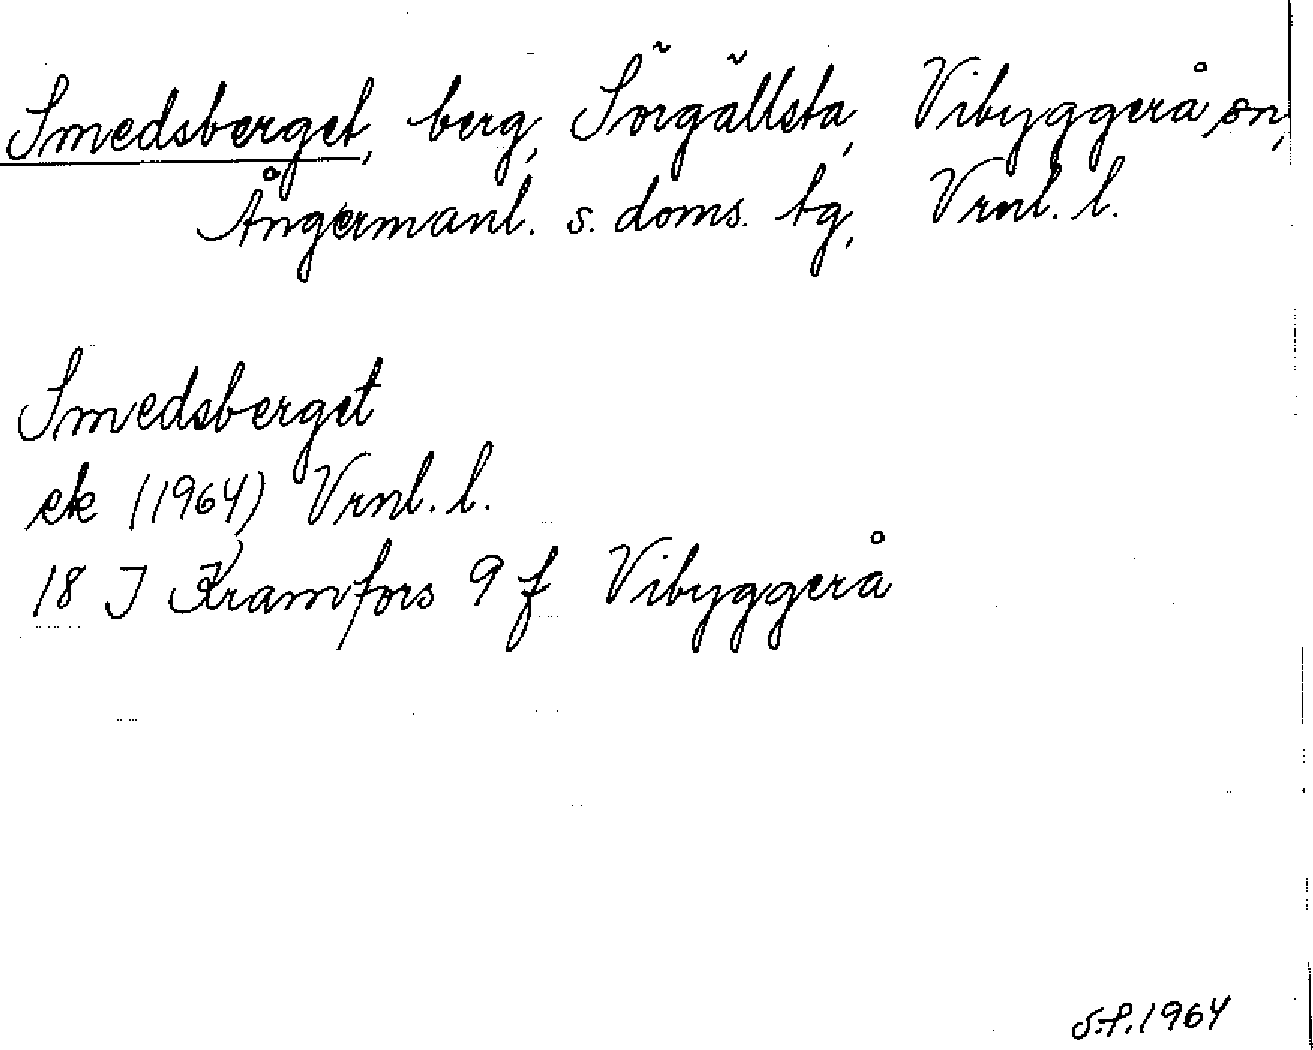 Smedsberget, berg, Sörgällsta, Vibyggerå sn,
Ångermanl. s. doms. tg, Vrnl. l.
Smedsberget
ek (1964) Vrnl. l.
18 J Kramfors 9 f Vibyggerå
S.F. 1964